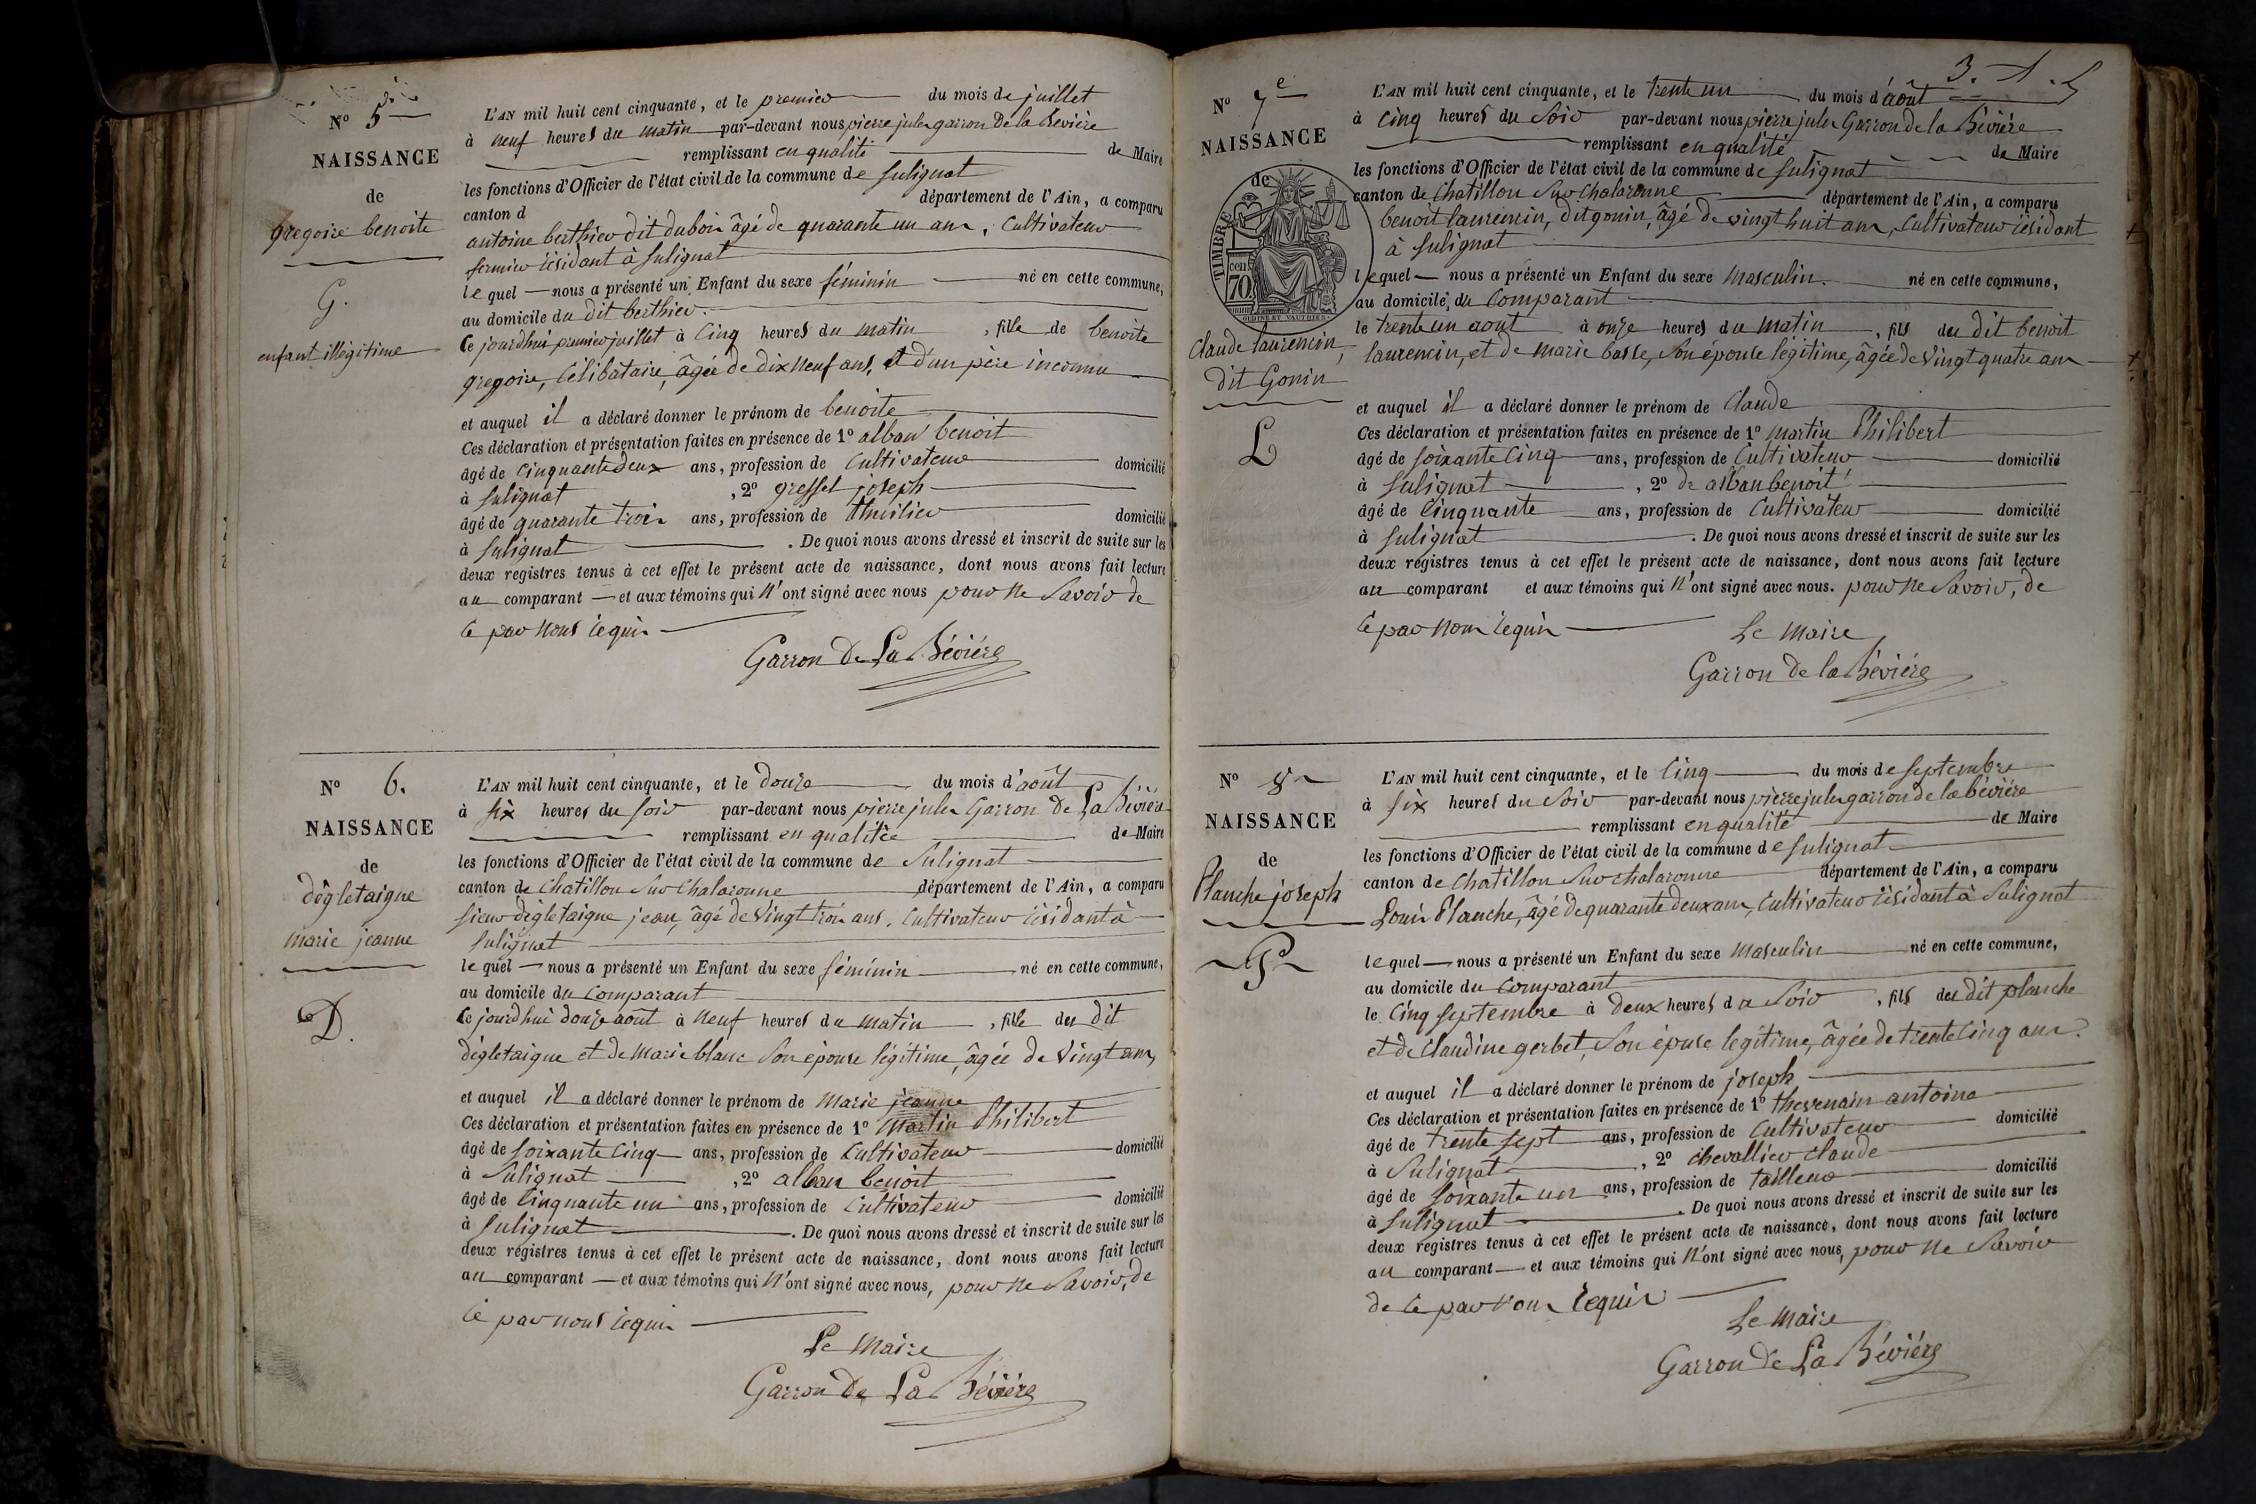 N° 5
NAISSANCE
de
gregoire benoite
G.
enfant illégitime
L'AN mil huit cent cinquante, et le premier du mois de juillet
à neuf heures du matin par-devant nous pierre jules garron De la Bevière
remplissant en qualité de Maire
les fonctions d'Officier de l'état civil de la commune de Sulignat
canton d département de l'Ain, a comparu
antoine berthier dit dubois âgé de quarante un ans, Cultivateur
fermier résidant à Sulignat
lequel nous a présenté un Enfant du sexe féminin né en cette commune,
au domicile du dit berthier.
Ce jourdhui premier juillet à Cinq heures du matin, fille de benoite
gregoire, Célibataire, âgée de dix neuf ans, et d'un père inconnu
et auquel il a déclaré donner le prénom de benoite
Ces déclaration et présentation faites en présence de 1° alban benoit
âgé de Cinquante deux ans, profession de Cultivateur domicilié
à Sulignat, 2° greffet joseph
âgé de quarante trois ans, profession de thuilier domicilié
à Sulignat. De quoi nous avons dressé et inscrit de suite sur les
deux registres tenus à cet effet le présent acte de naissance, dont nous avons fait lecture
au comparant et aux témoins qui n'ont signé avec nous pour ne Savoir de
Ce par nous requis
Garron De La Bévière
N° 6.
NAISSANCE
de
dégletaigne
marie jeanne
D.
L'AN mil huit cent cinquante, et le douze du mois d'août
à Six heures du soir par-devant nous pierre jules Garron De La Bévière
remplissant en qualitée de Maire
les fonctions d'Officier de l'état civil de la commune de Sulignat
canton de Chatillon Sur Chalaronne département de l'Ain, a comparu
sieur dégletaigne jean, âgé de Vingt trois ans, Cultivateur résidant à
Sulignat
lequel nous a présenté un Enfant du sexe féminin né en cette commune,
au domicile du Comparant
Ce jourdhui douze août à neuf heures du matin, fille du dit
dégletaigne et de Marie blanc Son épouse légitime, âgée de Vingt ans,
et auquel il a déclaré donner le prénom de Marie jeanne
Ces déclaration et présentation faites en présence de 1° Martin Philibert
âgé de Soixante Cinq ans, profession de Cultivateur domicilié
à Sulignat, 2° alban benoit
âgé de Cinquante un ans, profession de Cultivateur domicilié
à Sulignat. De quoi nous avons dressé et inscrit de suite sur les
deux registres tenus à cet effet le présent acte de naissance, dont nous avons fait lecture
au comparant et aux témoins qui n'ont signé avec nous, pour ne Savoir, de
Ce par nous requis
Le Maire
Garron De La Bévière
3.
N° 7e
NAISSANCE
de
TIMBRE
cen
70
OUDINE ET VAUTHIER
Claude laurencin,
dit Gonin
L
L'AN mil huit cent cinquante, et le trente un du mois d'août
à Cinq heures du Soir par-devant nous pierre jules Garron de la Bévière
remplissant en qualité de Maire
les fonctions d'Officier de l'état civil de la commune de Sulignat
canton de Chatillon Sur Chalaronne département de l'Ain, a comparu
benoit laurencin, dit gonin, âgé de vingt huit ans, Cultivateur résidant
à Sulignat
lequel nous a présenté un Enfant du sexe Masculin. né en cette commune,
au domicile du Comparant
le trente un aout à onze heures du matin, fils du dit benoit
laurencin, et de Marie basse, son épouse légitime, âgée de Vingt quatre ans
et auquel il a déclaré donner le prénom de Claude
Ces déclaration et présentation faites en présence de 1° Martin Philibert
âgé de Soixante Cinq ans, profession de Cultivateur domicilié
à Sulignat, 2° de alban benoit
âgé de Cinquante ans, profession de Cultivateur domicilié
à Sulignat. De quoi nous avons dressé et inscrit de suite sur les
deux registres tenus à cet effet le présent acte de naissance, dont nous avons fait lecture
au comparant et aux témoins qui n'ont signé avec nous. pour ne Savoir, de
Ce par nous requis
Le Maire
Garron De la Bévière
N° 8
NAISSANCE
de
Planche joseph
P
L'AN mil huit cent cinquante, et le Cinq du mois de septembre
à Six heures du Soir par-devant nous pierre jules garron de la bévière
remplissant en qualité de Maire
les fonctions d'Officier de l'état civil de la commune de Sulignat
canton de Chatillon Sur Chalaronne département de l'Ain, a comparu
Louis Planche, âgé de quarante deux ans, Cultivateur résidant à Sulignat
lequel nous a présenté un Enfant du sexe Masculin né en cette commune,
au domicile du Comparant
le Cinq septembre à Deux heures du Soir, fils du dit planche
et de Claudine gerbet, Son épouse légitime, âgée de trente Cinq ans.
et auquel il a déclaré donner le prénom de joseph
Ces déclaration et présentation faites en présence de 1° thevenain antoine
âgé de trente sept ans, profession de Cultivateur domicilié
à Sulignat, 2° chevallier claude
âgé de Soixante un ans, profession de tailleur domicilié
à Sulignat. De quoi nous avons dressé et inscrit de suite sur les
deux registres tenus à cet effet le présent acte de naissance, dont nous avons fait lecture
au comparant et aux témoins qui n'ont signé avec nous, pour ne Savoir
de Ce par nous requis
Le Maire
Garron De La Bévière